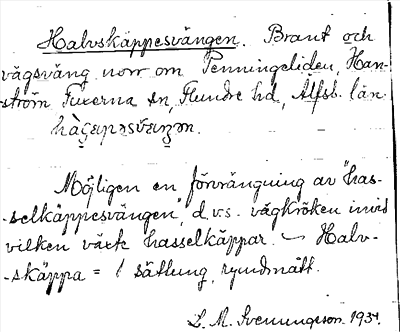 Halvskäppesvängen. Brant och
vägsväng norr om Penningeliden, Han-
ström Fuxerna sn, Flundre hd, Älfsb. län.
Möjligen en förvrängning av "has-
-selkäppesvängen", d.v.s. vägkröken invid
vilken växte hasselkäppar. ~ Halv-
-skäppa = 1 sättung, rymdmått.
L. M. Svenungsson 1934.